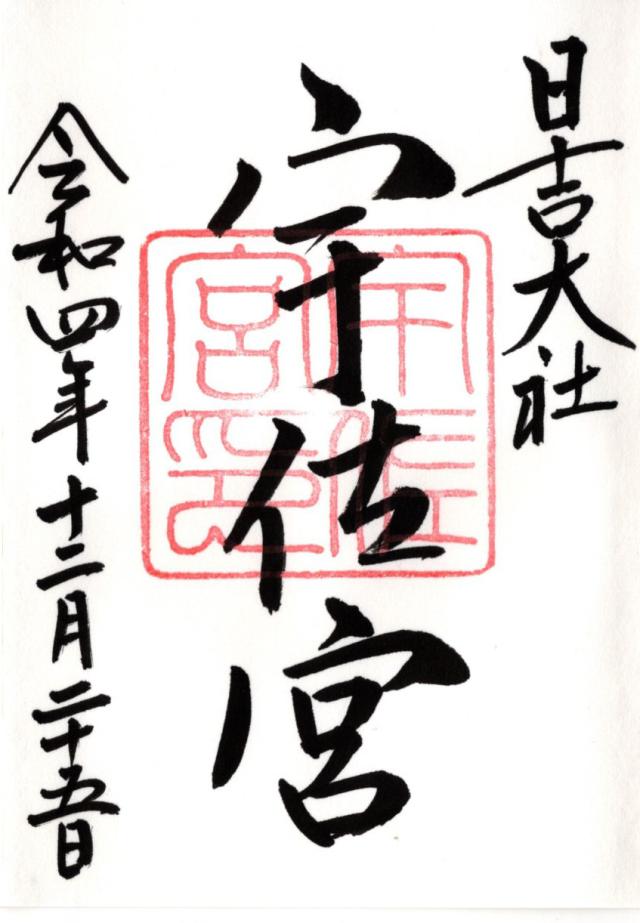 日吉大社
宇佐宮
宇佐
宮印
令和四年十二月二十五日